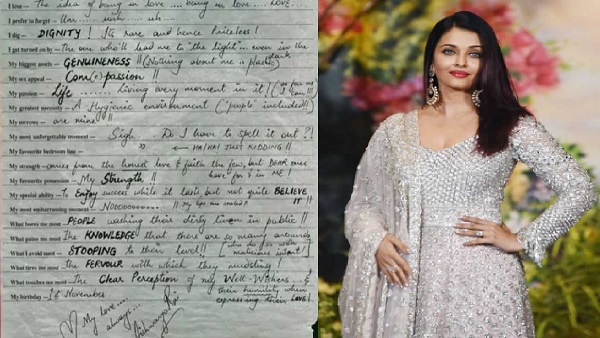 I love – The idea of being in love .... being in love ... LOVE...
I prefer to forget –
I dig – DIGNITY! Its rare and hence Priceless!
I get turned on by – The one who'll lead me to "the light"... even in the
dark
My biggest assets – GENUINENESS!! (Nothing about me is plastic
My sex appeal – Com(o)passion!!
My passion – Life ..... Living every moment in it! (as far as
I can!!!)
My greatest necessity – A Hygenic environment ("people" included!!)
My sorrows – are mine!!
My most unforgettable moment – Sigh .. Do I have to spell it out?!
My favourite bedroom line – " " ← HA!HA! JUST KIDDING!!
My strength – comes from the honest love & faith the few, but DEAR ones
have for & in ME!
My favourite possession – My Strength!!
My special ability – To Enjoy success while it lasts but not quite BELIEVE
it!!
My most embarrassing moment – NOOOOOO.......!! My lips are sealed!!
What bores me most – PEOPLE washing their dirty linen in public!!
What pains me most – The KNOWLEDGE that there are so many around
What I avoid most – STOOPING to their level!! [who do so with malicious intent!]
What tires me most – the FERVOUR with which they
What touches me most – The Clear Perception of my Well-Wishers.. &
their humility when
My birthday – 1st November expressing their LOVE!
My love....
always...